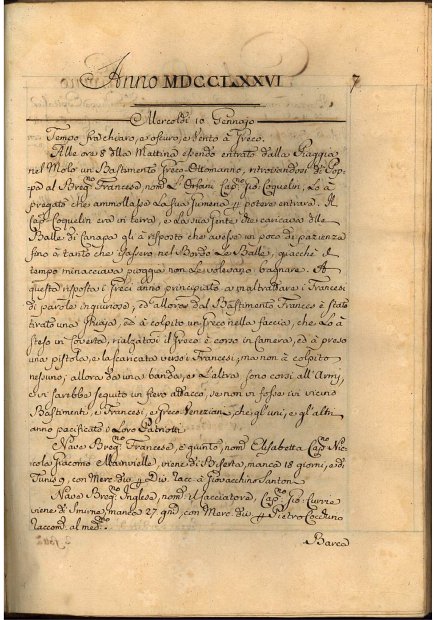 Anno MDCCLXXVI 7
Mercoldì 10 Gennajo
Tempo fra chiaro, e oscuro, e Vento à Greco.
Alle ore 8 della Mattina essendo entrato dalla Piaggia
nel Molo un Bastimento Greco-Ottomanno, ritrovandosi di Pop=
pa al Breq.no Francese nom.to L'Orfani Cap.no Gio. Coquelin, Lo à
pregato che ammollasse La sua Gumena p potere entrare. Il
Cap.no Coquelin era in terra, e La sua Gente che caricava delle
Balle di Canapa gli à risposto che avesse un poco di pazienza
fino a tanto che issassero nel Bordo Le Balle, giacchè il
tempo minacciava pioggia non Le volevano bagnare. A
questa risposta i Greci anno principiato a maltrattare i Francesi
di parole ingiuriose, ed allora dal Bastimento Francese è stato
tirato una , ed à colpito un Greco nella faccia, che Lo à
steso in Coverta, rialzatosi il Greco è corso in Camera, ed à preso
una pistola, e la scaricata verso i Francesi, ma non à colpito
nessuno; allora da una banda, e L'altra sono corsi all'Armi,
e vi sarebbe seguito un fiero attacco, se non vi fosse ivi vicino
Bastimenti, e Francesi, e Greco-Veneziani, che gl'uni, e gl'altri
anno pacificato i Loro Patriotti
Nave Breq.no Francese, e quinto, nom.to Elisabetta Cap.no Nic=
cola Giacomo Mainville, viene di Biserta, manca 18 giorni, e di
Tunis 9, con Merc. div. p Div. racc. a Giovacchino Santoni
Nave Breq.no Inglese, nom.to il Cacciatore, Cap.no Gio. Currie
viene di Smirne, manca 27 gni, con Merc. div. p Pietro
raccom. al med.mo
Barca